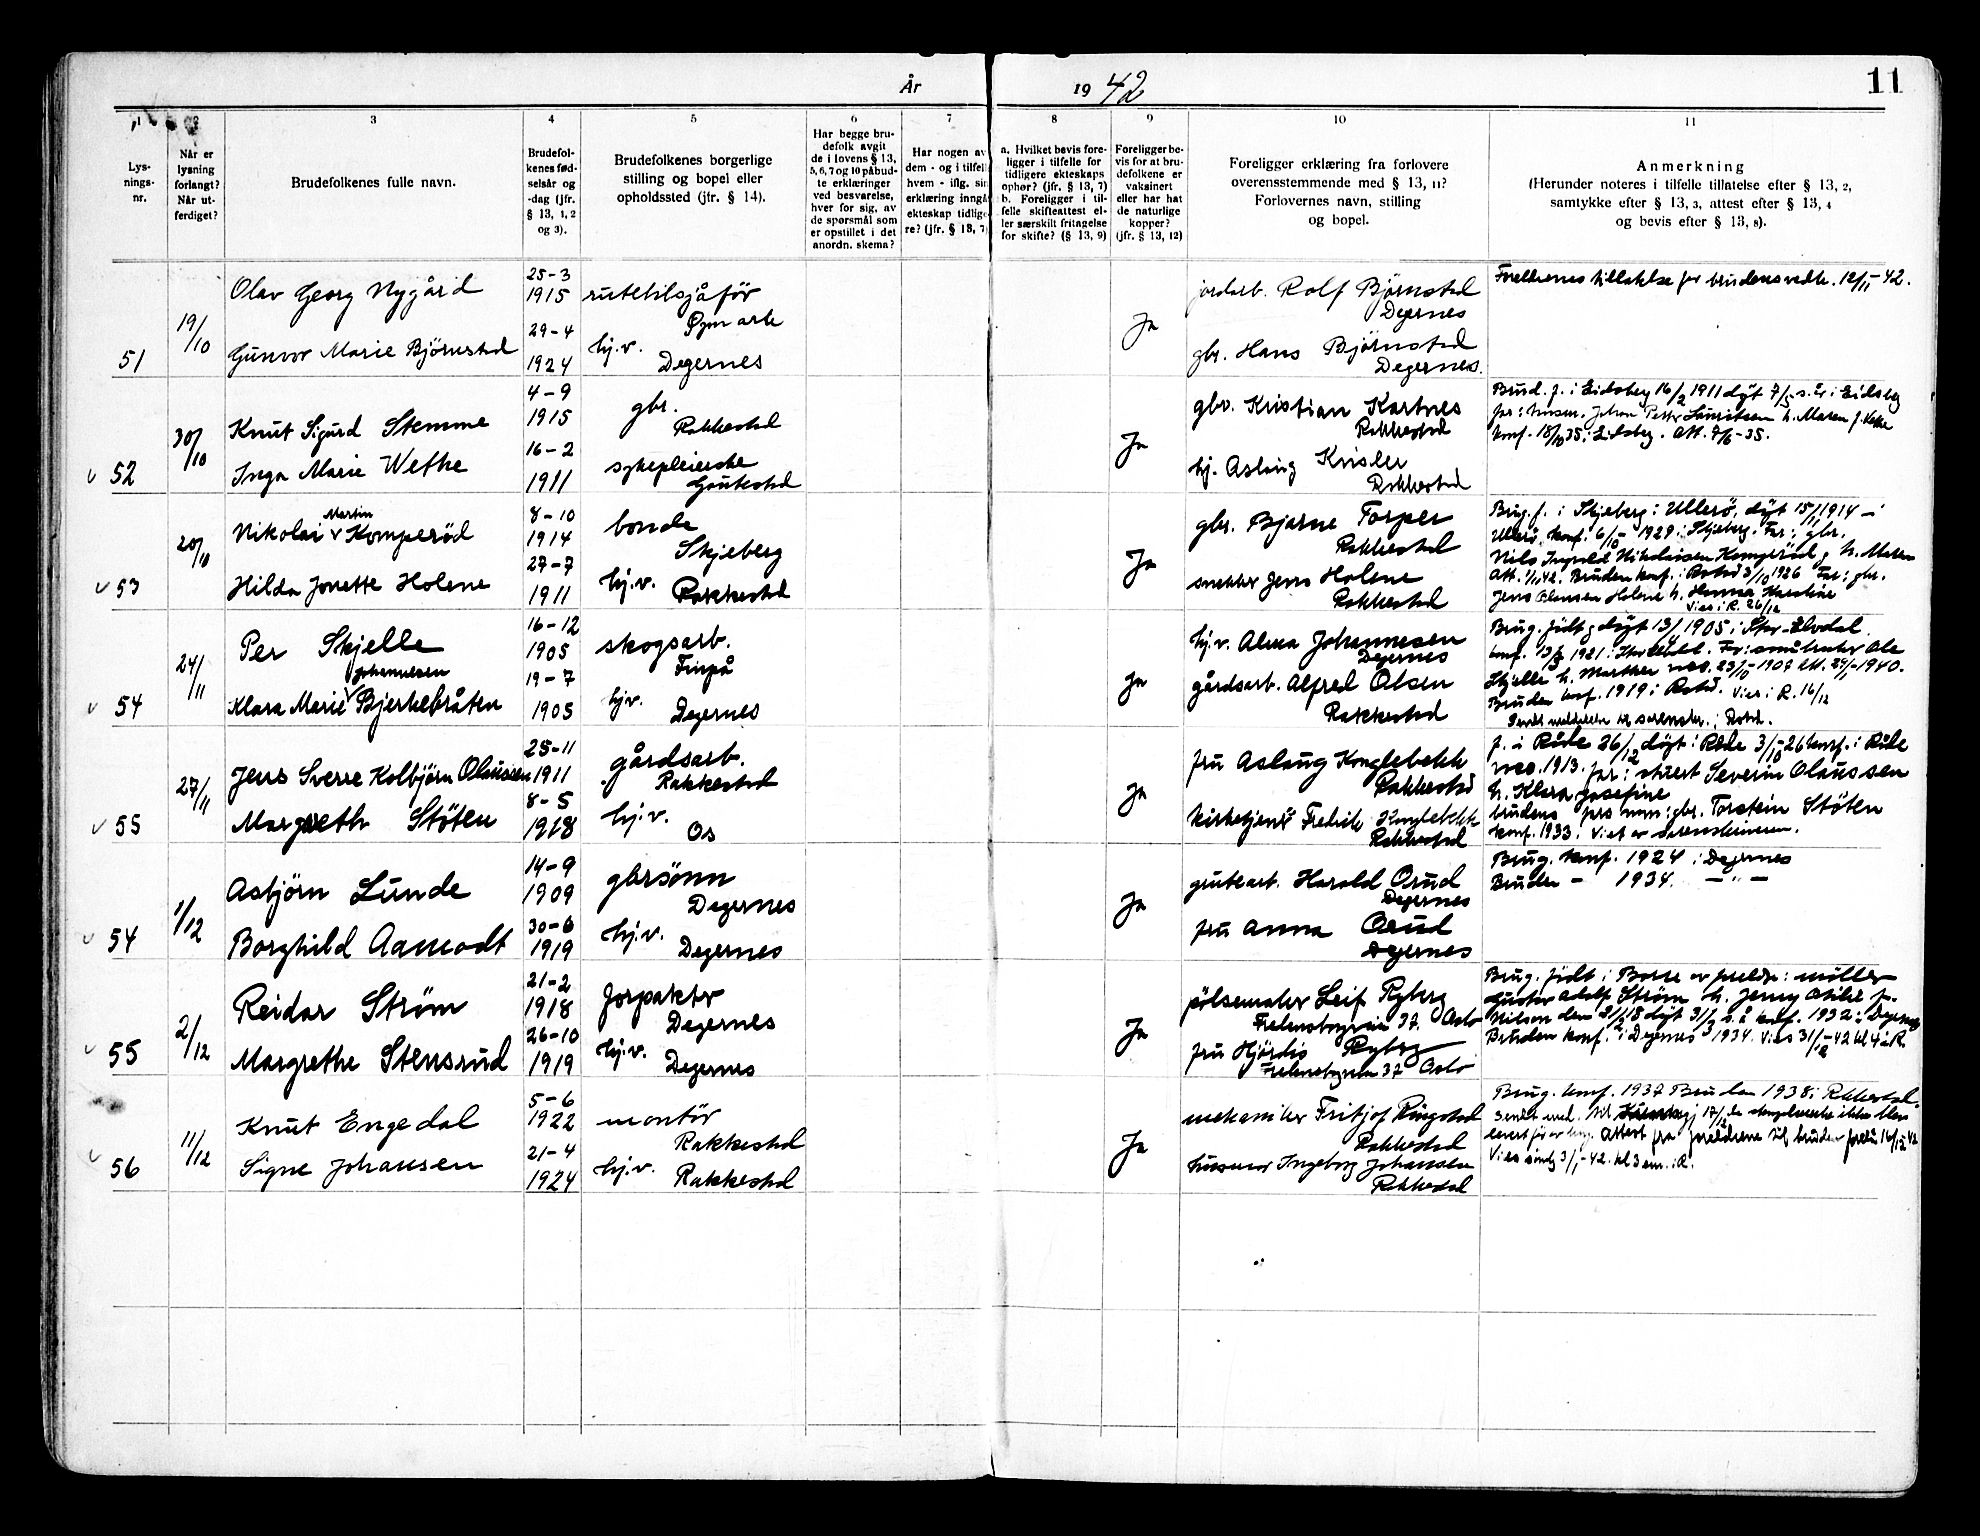 År 1942
11
1
2
3
4
5
6
7
8
9
10
11
Lys-
nings-
nr.
Når er
lysning
forlangt?
Når ut-
ferdiget?
Brudefolkenes fulle navn.
Brudefol-
kenes fød-
selsår og
-dag (jfr.
§ 13, 1, 2
og 3).
Brudefolkenes borgerlige
stilling og bopel eller
opholdssted (jfr. § 14).
Har begge bru-
defolk avgit
de i lovens § 13,
5, 6, 7 og 10 påbud-
te erklæringer
ved besvarelse,
hver for sig, av
de spørsmål som
er opstillet i det
anordn. skema?
Har nogen av
dem - og i tilfelle
hvem - iflg. sin
erklæring inngå
ekteskap tidlige
re? (jfr. § 13, 7)
a. Hvilket bevis fore-
ligger i tilfelle for
tidligere ekteskaps
ophør? (jfr. § 13, 7)
b. Foreligger i til-
felle skifteattest el-
ler særskilt fritagelse
for skifte? (§ 13, 9)
Foreligger be-
vis for at bru-
defolkene er
vaksinert
eller har hat
de naturlige
kopper?
(jfr. § 13, 12)
Foreligger erklæring fra forlovere
overensstemmende med § 13, 11?
Forlovernes navn, stilling
og bopel.
Anmerkning
(Herunder noteres i tilfelle tillatelse efter § 13, 2,
samtykke efter § 13, 3, attest efter § 13, 4
og bevis efter § 13, 8).
51
19/10
Olav Georg Nygård
Gunvor Marie Bjørnstad
25-3
1915
29-4
1924
rutebilsjåför
hj.v.
Degernes
Ja
jordarb. Rolf Bjørnstad
Degernes
gbr. Hans Bjørnstad
Degernes.
Foreldrenes tillatelse for brudens vedk. 12/11-42.
52
30/10
Knut Sigurd Stemme
Inga Marie Wethe
4-9
1915
16-2
1911
gbr.
Rakkestad
sykepleierske
Gautestad
Ja
gbr. Kristian Kartnes
Rakkestad
hj. Aslaug Krisler
Rakkestad
Brud. f. i Eidsberg 16/2 1911 døpt 7/5 s. år i Eidsberg
far: Johan Petter Lauritsen h. Maren f. Vethe
konf. 18/10 35 i Eidsberg. Att. 7/6-35.
53
20/11
Nikolai Martin Komperød
Hilda Jonette Holene
8-10
1914
27-7
1911
bonde
Skjeberg
hj.v. Rakkestad
Ja
gbr. Bjarne Torper
Rakkestad
snekker Jens Holene
Rakkestad
Brug. f. i Skjeberg i Ullerö, døpt 15/11 1914 i
Ullerö, konf. 6/10 1929 i Skjeberg. Far: gbr.
Nils Ingvald Nikolaisen Komperöd, h. Maren
Att. 1/11 42. Bruden konf. i Rakst. 3/10 1926 Far: gbr.
Jens Olausen Holene h. Hanna Karoline
Vies i R. 26/12
54
24/11
Per Skjelle
Klara Marie Johannesen Bjerkebråten
16-12
1905
19-7
1905
skogsarb.
hj.v.
Degernes
Ja
hj.v. Alma Johannesen
Degernes
gårdsarb. Alfred Olsen
Rakkestad
Brug. født og døpt 13/4 1905 i Stor-Elvdal
Skjelle h. Marthea
Bruden konf. 1919 i Rakst. Vies i R. 16/12
55
27/11
Jens Sverre Kolbjørn Olaussen
Margreth Støten
25-11
1911
8-5
1918
gårdsarb.
Rakkestad
hj.v.
Os
Ja
fru Aslaug Konglebekk
Rakkestad
kirketjener Fredrik Konglebekk
Rakkestad
f. i Råde 26/12 døpt i Råde 3/10-26 konf. i Råde
1913. far: Severin Olaussen
h. Klara Josefine
brudens fars navn: gbr. Torstein Støten
konf. 1933. Viet av sorenskriveren.
54
1/12
Asbjørn Lunde
Borghild Aamodt
14-9
1909
30-6
1919
gbrsønn
Degernes
hj.v. Degernes
Ja
grubearb. Harald Orud
Degernes
fru Anna Orud
Degernes
Brug. konf. 1924 i Degernes
Bruden - 1934. - " -
55
2/12
Reidar Strøm
Margrethe Stensrud
21-2
1918
26-10
1919
forpakter
Degernes
hj.v.
Degernes
Ja
pölsemaker Leif Ryberg
37 Oslo
fru Hjördis Ryberg
37 Oslo
Brug. født i Båsse av foreldre: møller
Gustav Adolf Strøm h. Jenny Otilie f.
Nilsen den 21/2 18 døpt 31/3 s.å konf. 1932 i Degernes
Bruden konf. i Degernes 1934. Vies 31/12-42 kl 4 i R.
56
11/12
Knut Engedal
Signe Johansen
5-6
1922
21-4
1924
montör
Rakkestad
hj.v. Rakkestad
Ja
mekaniker Fritjof Ringstad
Rakkestad
husmor Ingeborg Johansen
Rakkestad
Brug. konf. 1937 Bruden 1938 i Rakkestad.
Attest fra foreldrene til bruden
Vies 3/1-42. kl 3 em. i R.